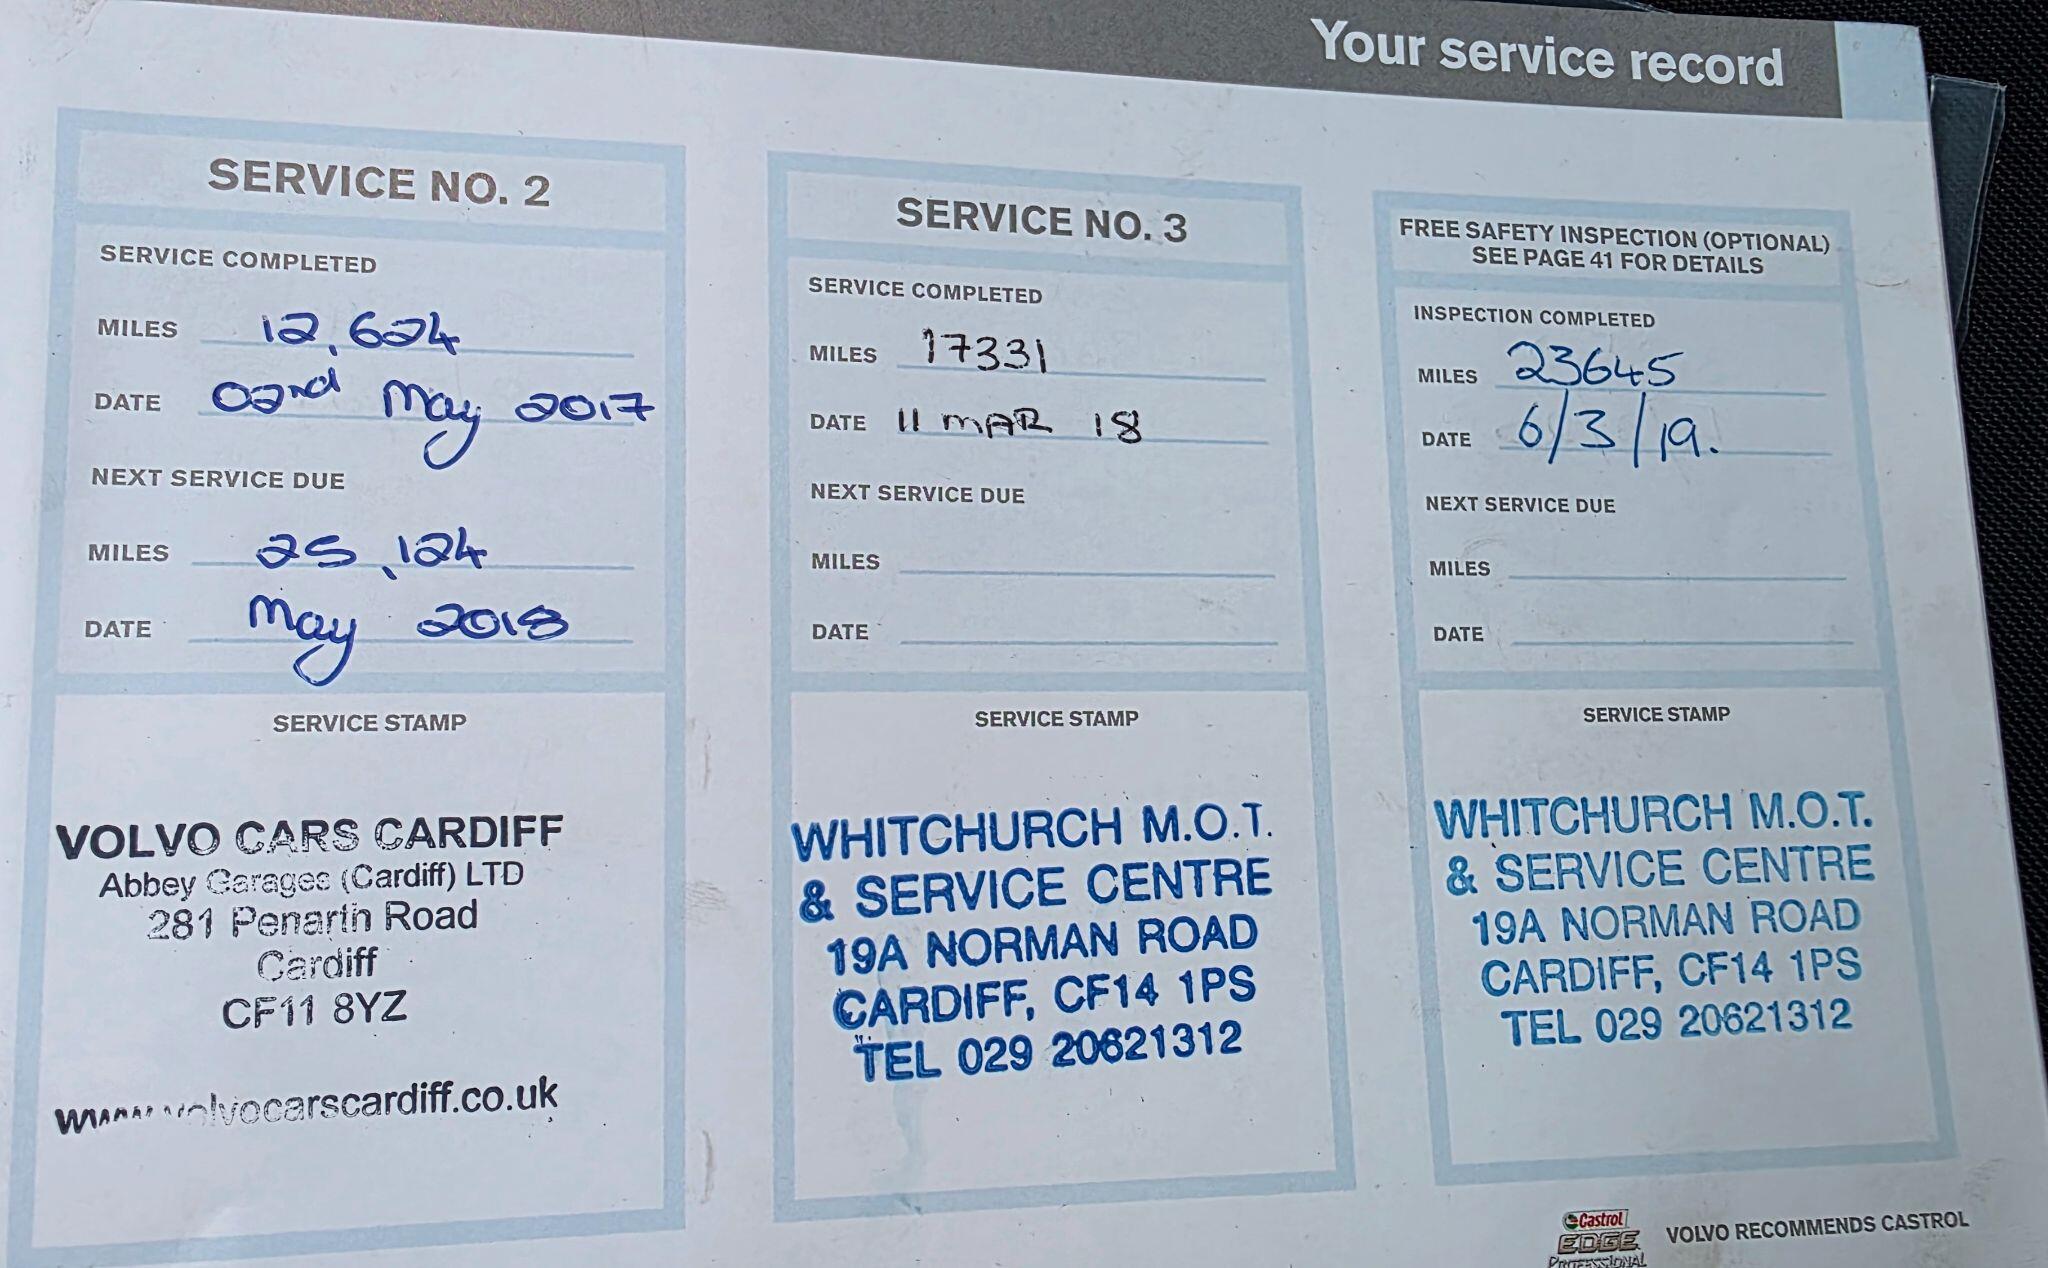 Your service record
SERVICE NO. 2
SERVICE COMPLETED
MILES 12,624
DATE 02nd May 2017
NEXT SERVICE DUE
MILES 25,124
DATE May 2018
SERVICE STAMP
VOLVO CARS CARDIFF
Abbey Garages (Cardiff) LTD
281 Penarth Road
Cardiff
CF11 8YZ
www.volvocarscardiff.co.uk
SERVICE NO. 3
SERVICE COMPLETED
MILES 17331
DATE 11 MAR 18
NEXT SERVICE DUE
MILES
DATE
SERVICE STAMP
WHITCHURCH M.O.T.
& SERVICE CENTRE
19A NORMAN ROAD
CARDIFF, CF14 1PS
TEL 029 20621312
FREE SAFETY INSPECTION (OPTIONAL)
SEE PAGE 41 FOR DETAILS
INSPECTION COMPLETED
MILES 23645
DATE 6/3/19.
NEXT SERVICE DUE
MILES
DATE
SERVICE STAMP
WHITCHURCH M.O.T.
& SERVICE CENTRE
19A NORMAN ROAD
CARDIFF, CF14 1PS
TEL 029 20621312
Castrol
EDGE
PROFESSIONAL
VOLVO RECOMMENDS CASTROL